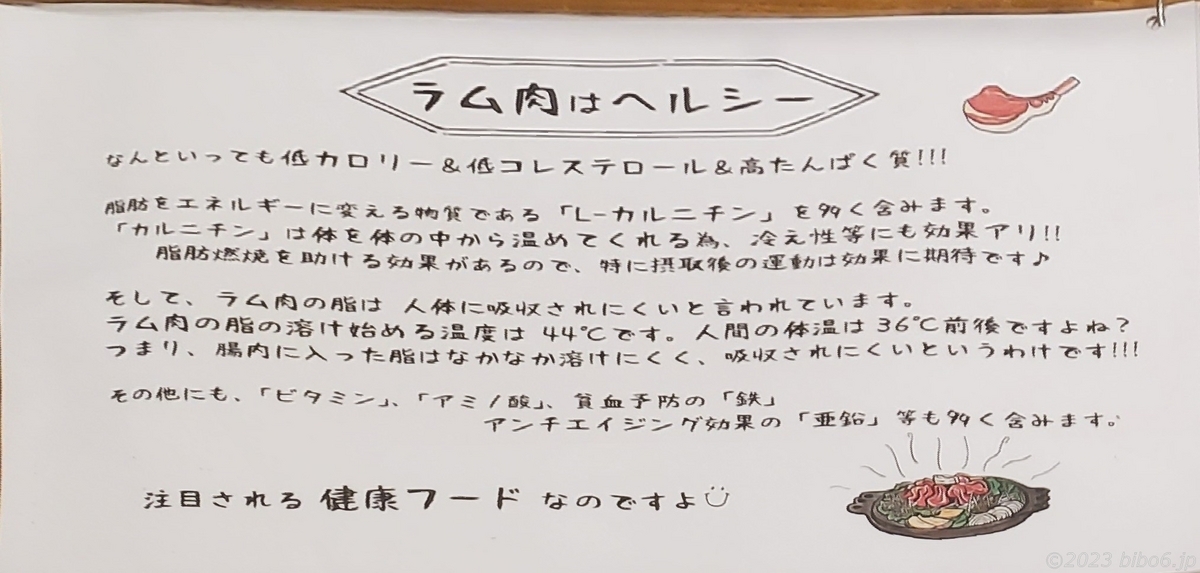 ラム肉はヘルシー
なんといっても低カロリー&低コレステロール&高たんぱく質!!!
脂肪をエネルギーに変える物質である「L-カルニチン」を多く含みます。
「カルニチン」は体を体の中から温めてくれる為、冷え性等にも効果アリ!!
脂肪燃焼を助ける効果があるので、特に摂取後の運動は効果に期待です♪
そして、ラム肉の脂は 人体に吸収されにくいと言われています。
ラム肉の脂の溶け始める温度は 44℃です。人間の体温は 36℃前後ですよね?
つまり、腸内に入った脂はなかなか溶けにくく、吸収されにくいというわけです!!!
その他にも、「ビタミン」、「アミノ酸」、貧血予防の「鉄」
アンチエイジング効果の「亜鉛」等も多く含みます。
注目される 健康フード なのですよ
©2023 bibo6.jp